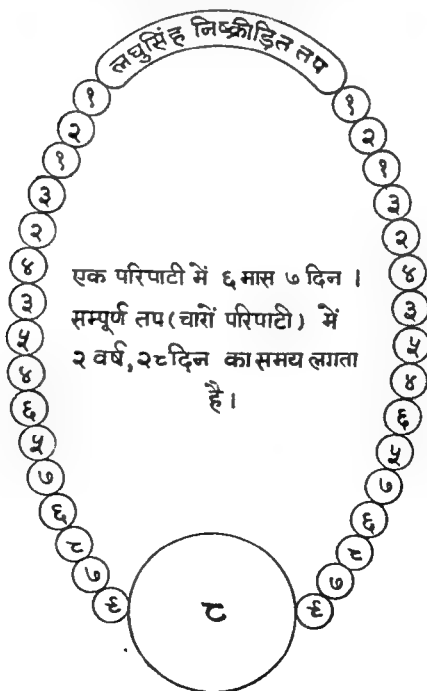 लघुसिंह निष्क्रीड़ित तप
१
२
१
३
२
४
३
५
४
६
५
७
६
८
७
९
एक परिपाटी में ६ मास ७ दिन ।
सम्पूर्ण तप (चारों परिपाटी) में
२ वर्ष, २८ दिन का समय लगता
है ।
१
२
१
३
२
४
३
५
४
६
५
७
६
८
७
९
८